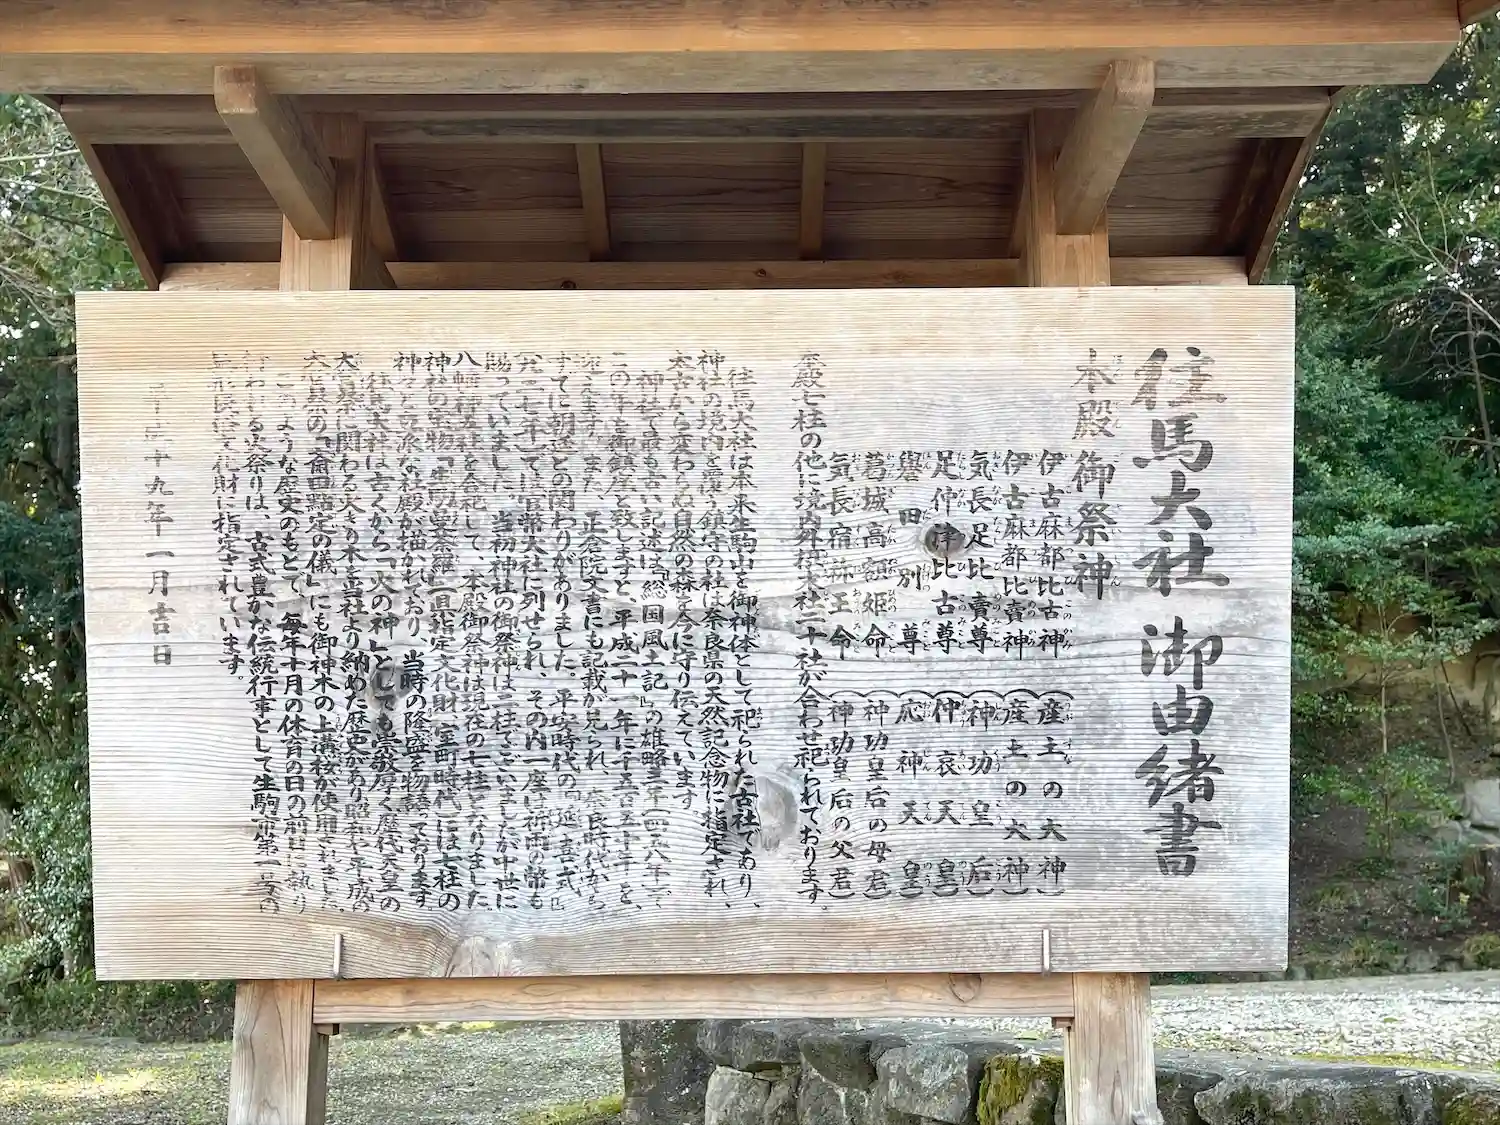 往馬大社 御由緒書
本殿 御祭神
伊古麻都比古神 (産土の大神)
伊古麻都比賣神 (産土の大神)
気長足比賣尊 (神功皇后)
足仲津比古尊 (仲哀天皇)
譽田別尊 (応神天皇)
葛城高額姫命 (神功皇后の母君)
気長宿祢王命 (神功皇后の父君)
本殿七柱の他に境内外摂末社二十社が合わせ祀られております。
往馬大社は本来生駒山を御神体として祀られた古社であり、
神社の境内を覆う鎮守の社は奈良県の天然記念物に指定され、
太古から変わらぬ自然の森を今に守り伝えています。
神社で最も古い記述は『総国風土記』の雄略三年(四五八年)で
この年を御鎮座と致しますと、平成二十一年に千五百五十年と、
なります。また、正倉院文書にも記載が見られ、奈良時代から
すでに朝廷との関わりがありました。平安時代の『延喜式』
(九二七年)では官幣大社に列せられ、その内一座は祈雨の幣も
賜っていました。当初神社の御祭神は二柱でございましたが中世に
八幡神五社を合祀して、本殿御祭神は現在の七柱となりました。
神社の宝物『生駒曼荼羅』(重指定文化財、室町時代)には七柱の
神々と立派な社殿が描かれており、当時の隆盛を物語っております。
往馬大社は古くから「火の神」としても崇敬厚く歴代天皇の
大嘗祭に関わる火きり木を当社より納めた歴史があり昭和や平成の
大嘗祭の「斎田點定の儀」にも御神木の上溝桜が使用されました。
このような歴史のもとで、毎年十月の体育の日の前日に執り
行われる火祭りは、古式豊かな伝統行事として生駒市第一号の
無形民俗文化財に指定されています。
平成十九年一月吉日